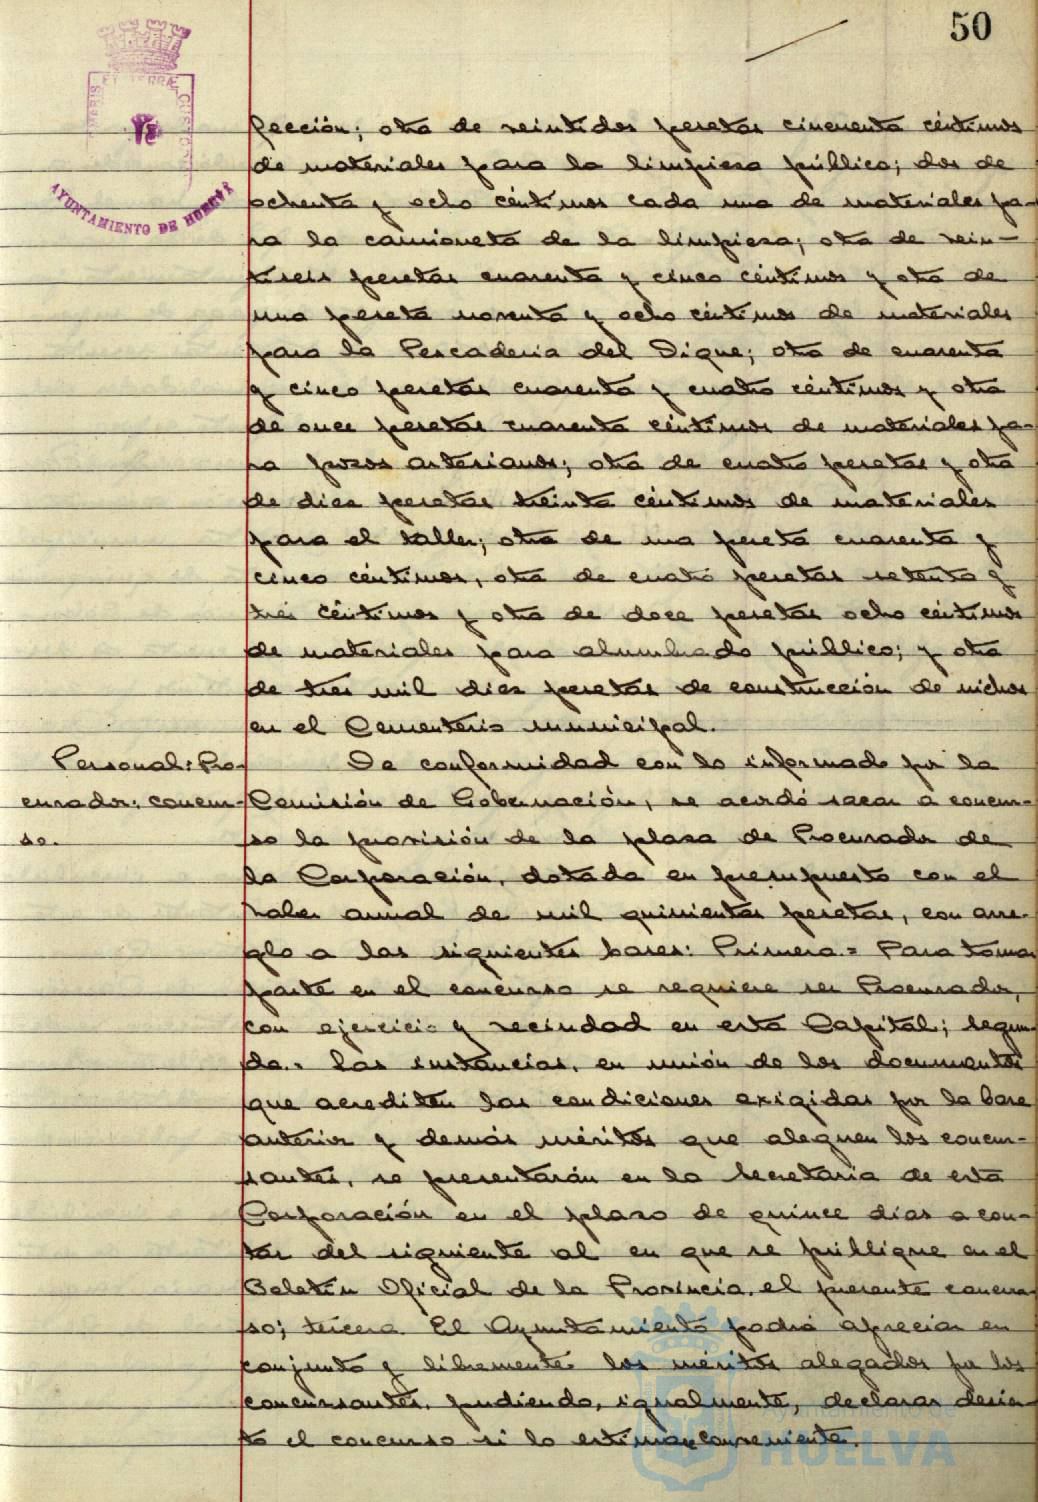 50
AYUNTAMIENTO DE HUELVA
pección; otra de veintidos pesetas cincuenta céntimos
de materiales para la limpieza pública; dos de
ochenta y ocho céntimos cada una de materiales pa-
ra la camioneta de la limpieza; otra de vein-
tiseis pesetas cuarenta y cinco céntimos y otra de
una peseta noventa y ocho céntimos de materiales
para la Pescaderia del Dique; otra de cuarenta
y cinco pesetas cuarenta y cuatro céntimos y otra
de once pesetas cuarenta céntimos de materiales pa-
ra pozos artesianos; otra de cuatro pesetas y otra
de diez pesetas treinta céntimos de materiales
para el taller; otra de una peseta cuarenta y
cinco céntimos, otra de cuatro pesetas setenta y
tres céntimos y otra de doce pesetas ocho céntimos
de materiales para alumbrado público; y otra
de tres mil diez pesetas de construcción de nichos
en el Cementerio municipal.
Personal: Pro-
curador: concur-
so.
De conformidad con lo informado por la
Comisión de Gobernación, se acordó sacar a concur-
so la provisión de la plaza de Procurador de
la Corporación, dotada en presupuesto con el
haber anual de mil quinientas pesetas, con arre-
glo a las siguientes bases: Primera.= Para tomar
parte en el concurso se requiere ser Procurador,
con ejercicio y vecindad en esta Capital; segun-
da.- Las instancias, en unión de los documentos
que acrediten las condiciones exigidas por la base
anterior y demás méritos que aleguen los concur-
santes, se presentarán en la Secretaria de esta
Corporación en el plazo de quince dias a con-
tar del siguiente al en que se publique en el
Boletin Oficial de la Provincia, el presente concur-
so; tercera. El Ayuntamiento podrá apreciar en
conjunto y libremente los méritos alegados por los
concursantes, pudiendo, igualmente, declarar desier-
to el concurso si lo estimare conveniente.
Ayuntamiento de
HUELVA